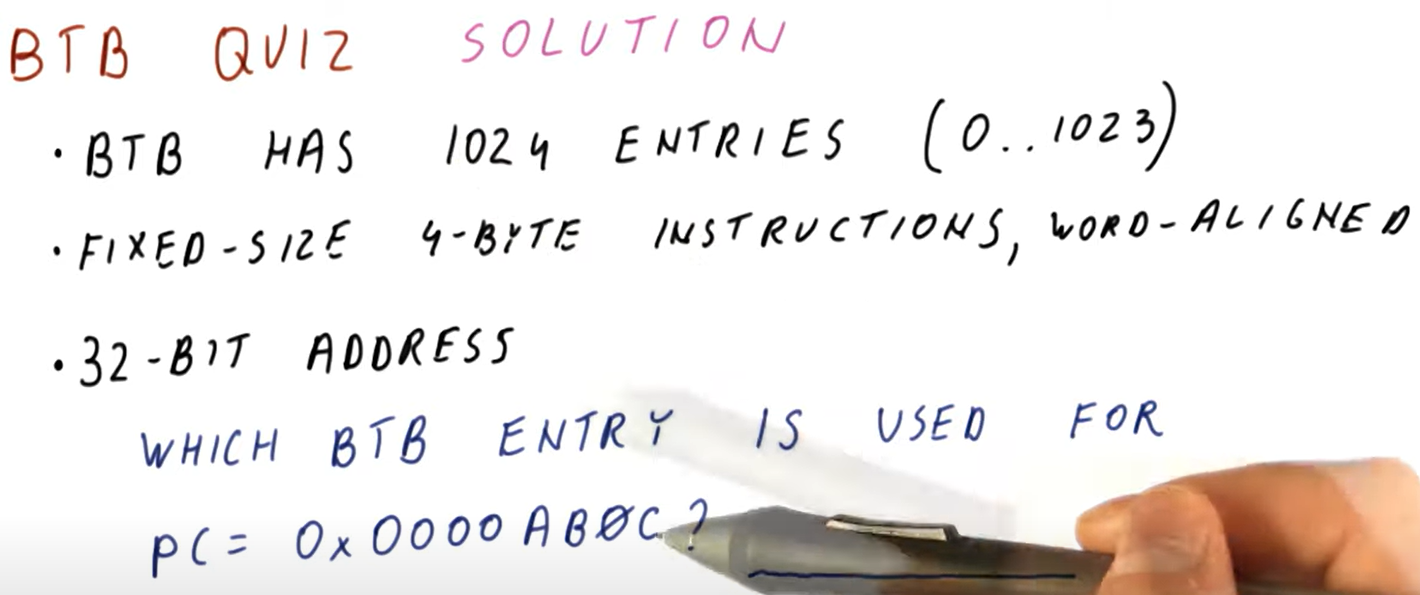 BTB QUIZ SOLUTION
• BTB HAS 1024 ENTRIES (0..1023)
• FIXED-SIZE 4-BYTE INSTRUCTIONS, WORD-ALIGNED
• 32-BIT ADDRESS
WHICH BTB ENTRY IS USED FOR
PC= 0x0000AB0C?